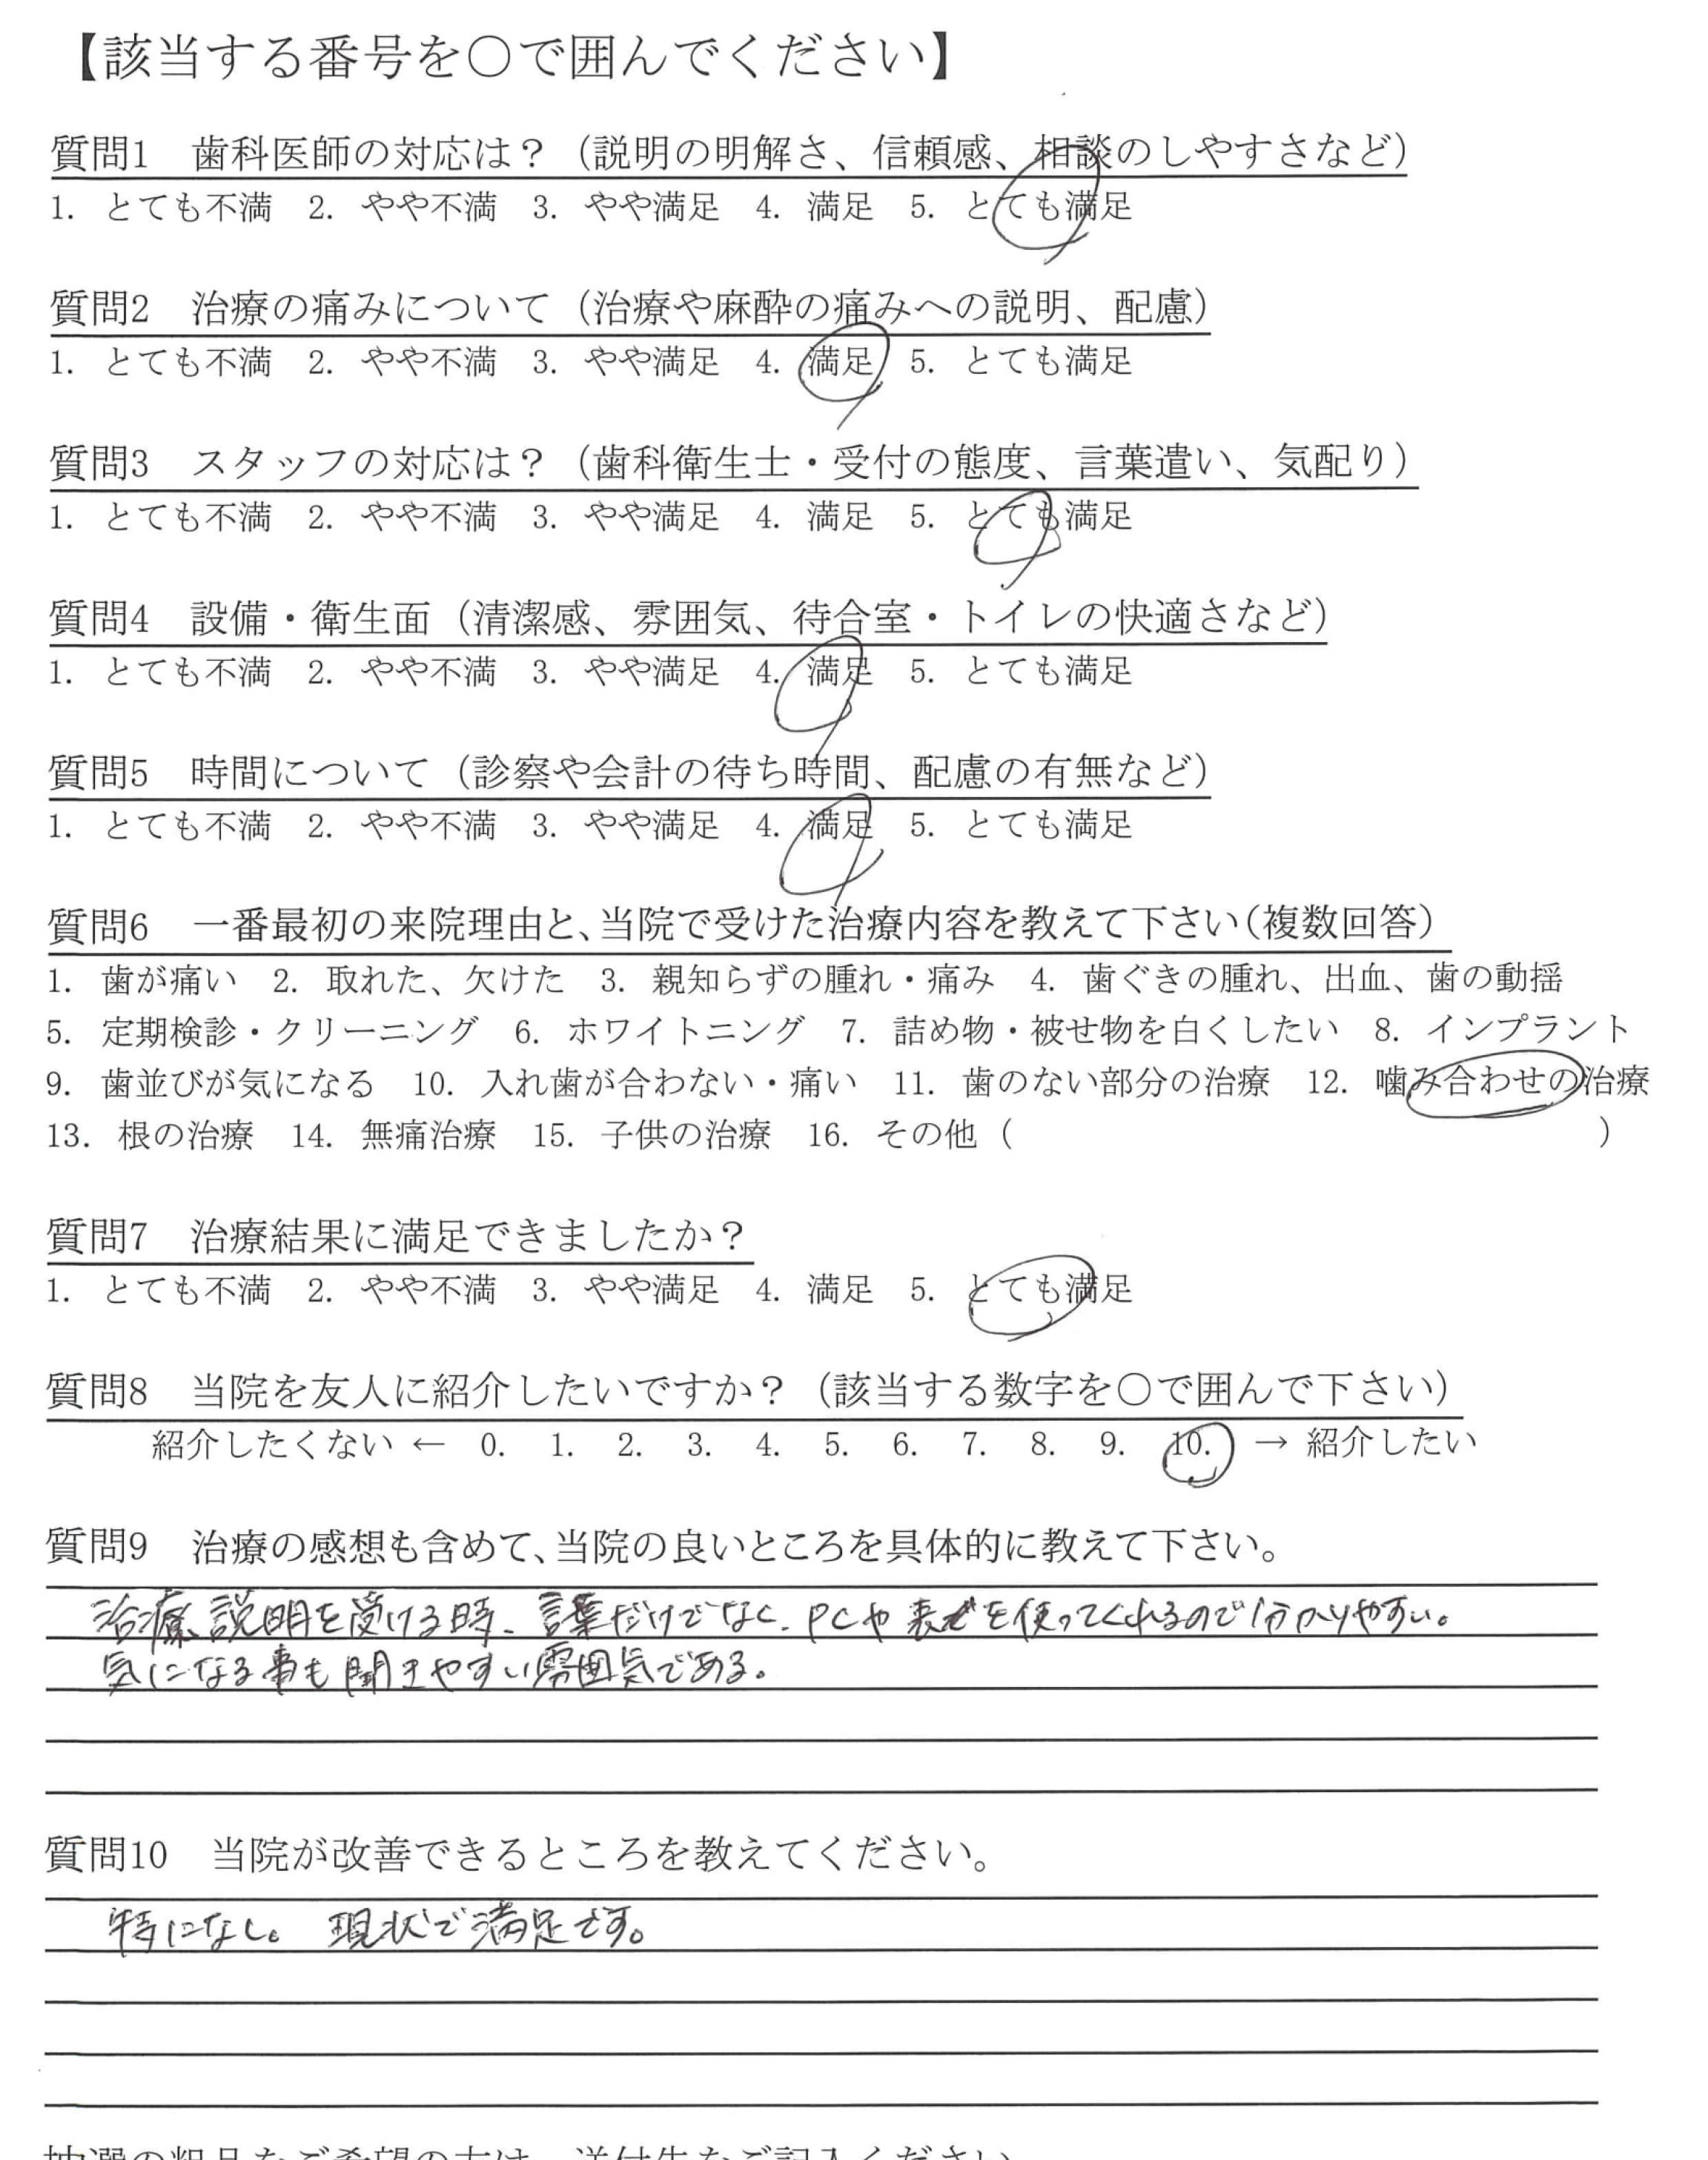 【該当する番号を○で囲んでください】
質問1　歯科医師の対応は？（説明の明解さ、信頼感、相談のしやすさなど）
1. とても不満　2. やや不満　3. やや満足　4. 満足　5. とても満足
質問2　治療の痛みについて（治療や麻酔の痛みへの説明、配慮）
1. とても不満　2. やや不満　3. やや満足　4. 満足　5. とても満足
質問3　スタッフの対応は？（歯科衛生士・受付の態度、言葉遣い、気配り）
1. とても不満　2. やや不満　3. やや満足　4. 満足　5. とても満足
質問4　設備・衛生面（清潔感、雰囲気、待合室・トイレの快適さなど）
1. とても不満　2. やや不満　3. やや満足　4. 満足　5. とても満足
質問5　時間について（診察や会計の待ち時間、配慮の有無など）
1. とても不満　2. やや不満　3. やや満足　4. 満足　5. とても満足
質問6　一番最初の来院理由と、当院で受けた治療内容を教えて下さい（複数回答）
1. 歯が痛い　2. 取れた、欠けた　3. 親知らずの腫れ・痛み　4. 歯ぐきの腫れ、出血、歯の動揺
5. 定期検診・クリーニング　6. ホワイトニング　7. 詰め物・被せ物を白くしたい　8. インプラント
9. 歯並びが気になる　10. 入れ歯が合わない・痛い　11. 歯のない部分の治療　12. 噛み合わせの治療
13. 根の治療　14. 無痛治療　15. 子供の治療　16. その他（　　　　　　　　　　　　　　　　　）
質問7　治療結果に満足できましたか？
1. とても不満　2. やや不満　3. やや満足　4. 満足　5. とても満足
質問8　当院を友人に紹介したいですか？（該当する数字を○で囲んで下さい）
紹介したくない ← 0. 1. 2. 3. 4. 5. 6. 7. 8. 9. 10. → 紹介したい
質問9　治療の感想も含めて、当院の良いところを具体的に教えて下さい。
治療説明を受ける時、言葉だけでなく、PCや を使ってくれるので分かりやすい。
気になる事も聞きやすい雰囲気である。
質問10　当院が改善できるところを教えてください。
特になし。 現状で満足です。
抽選の粗品をご希望の方は、送付先をご記入ください